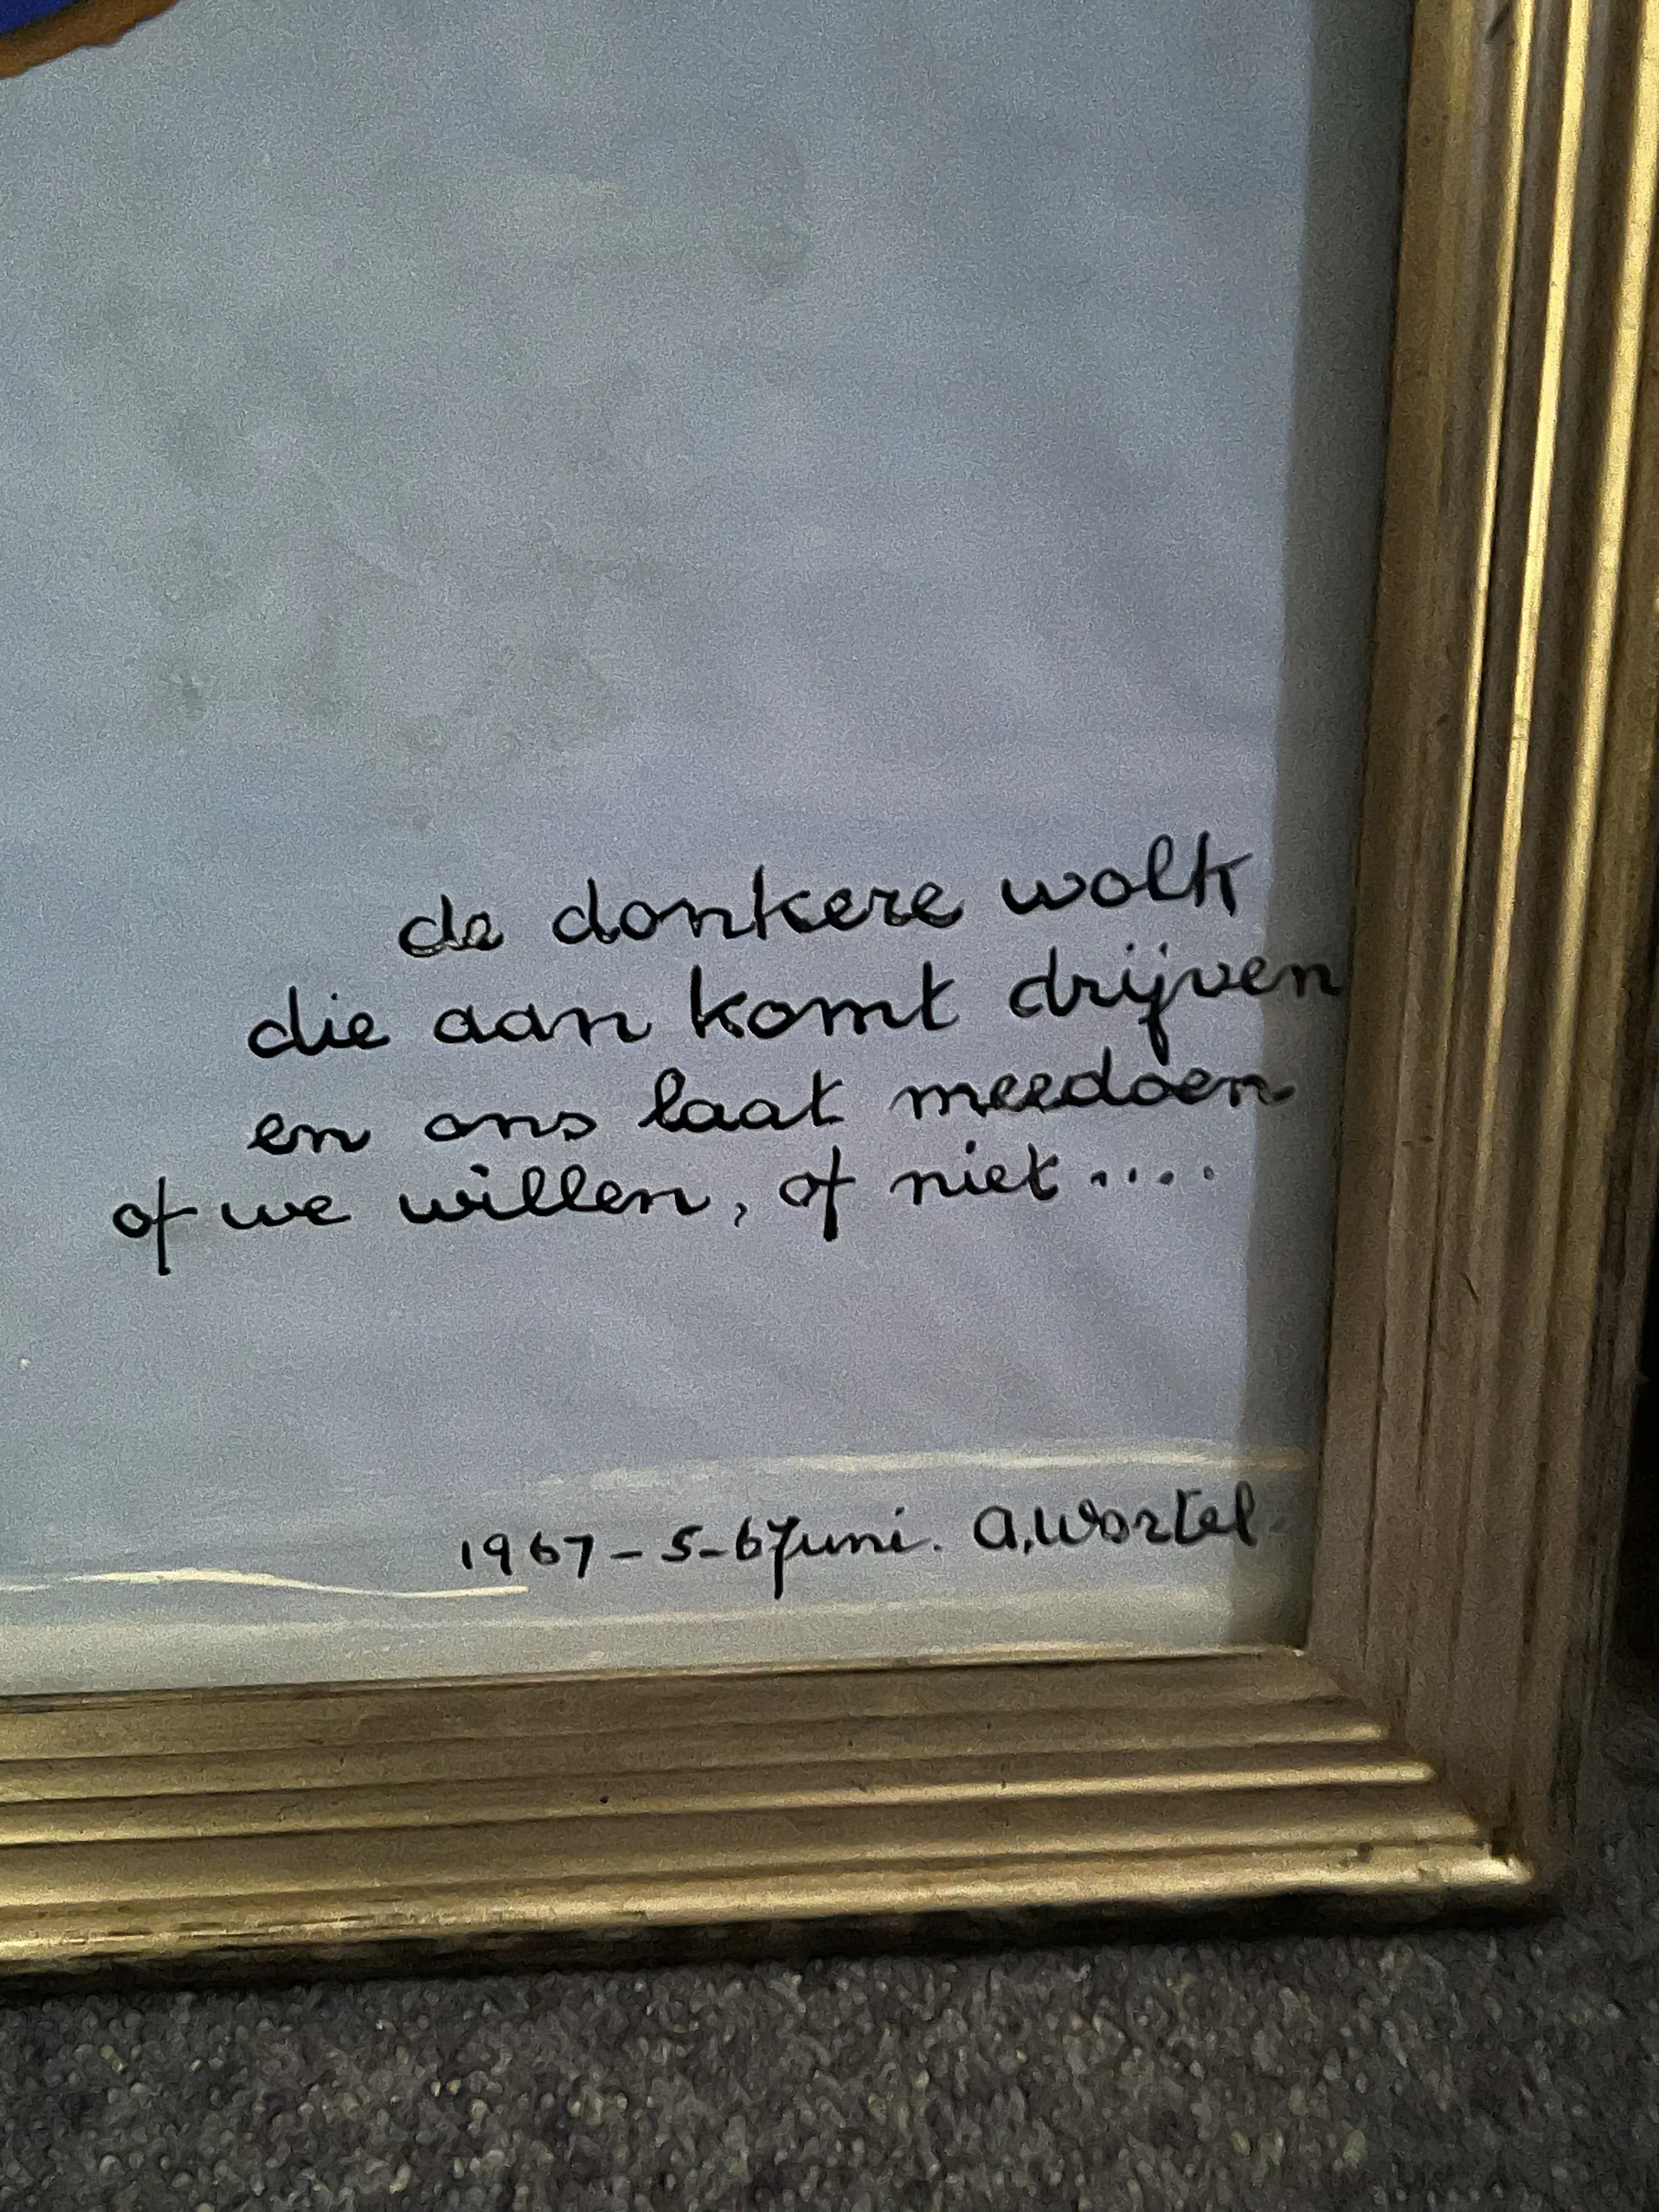 de donkere wolk
die aan komt drijven
en ons laat meedoen
of we willen, of niet....
1967-5-6 Juni. A. Wortel.